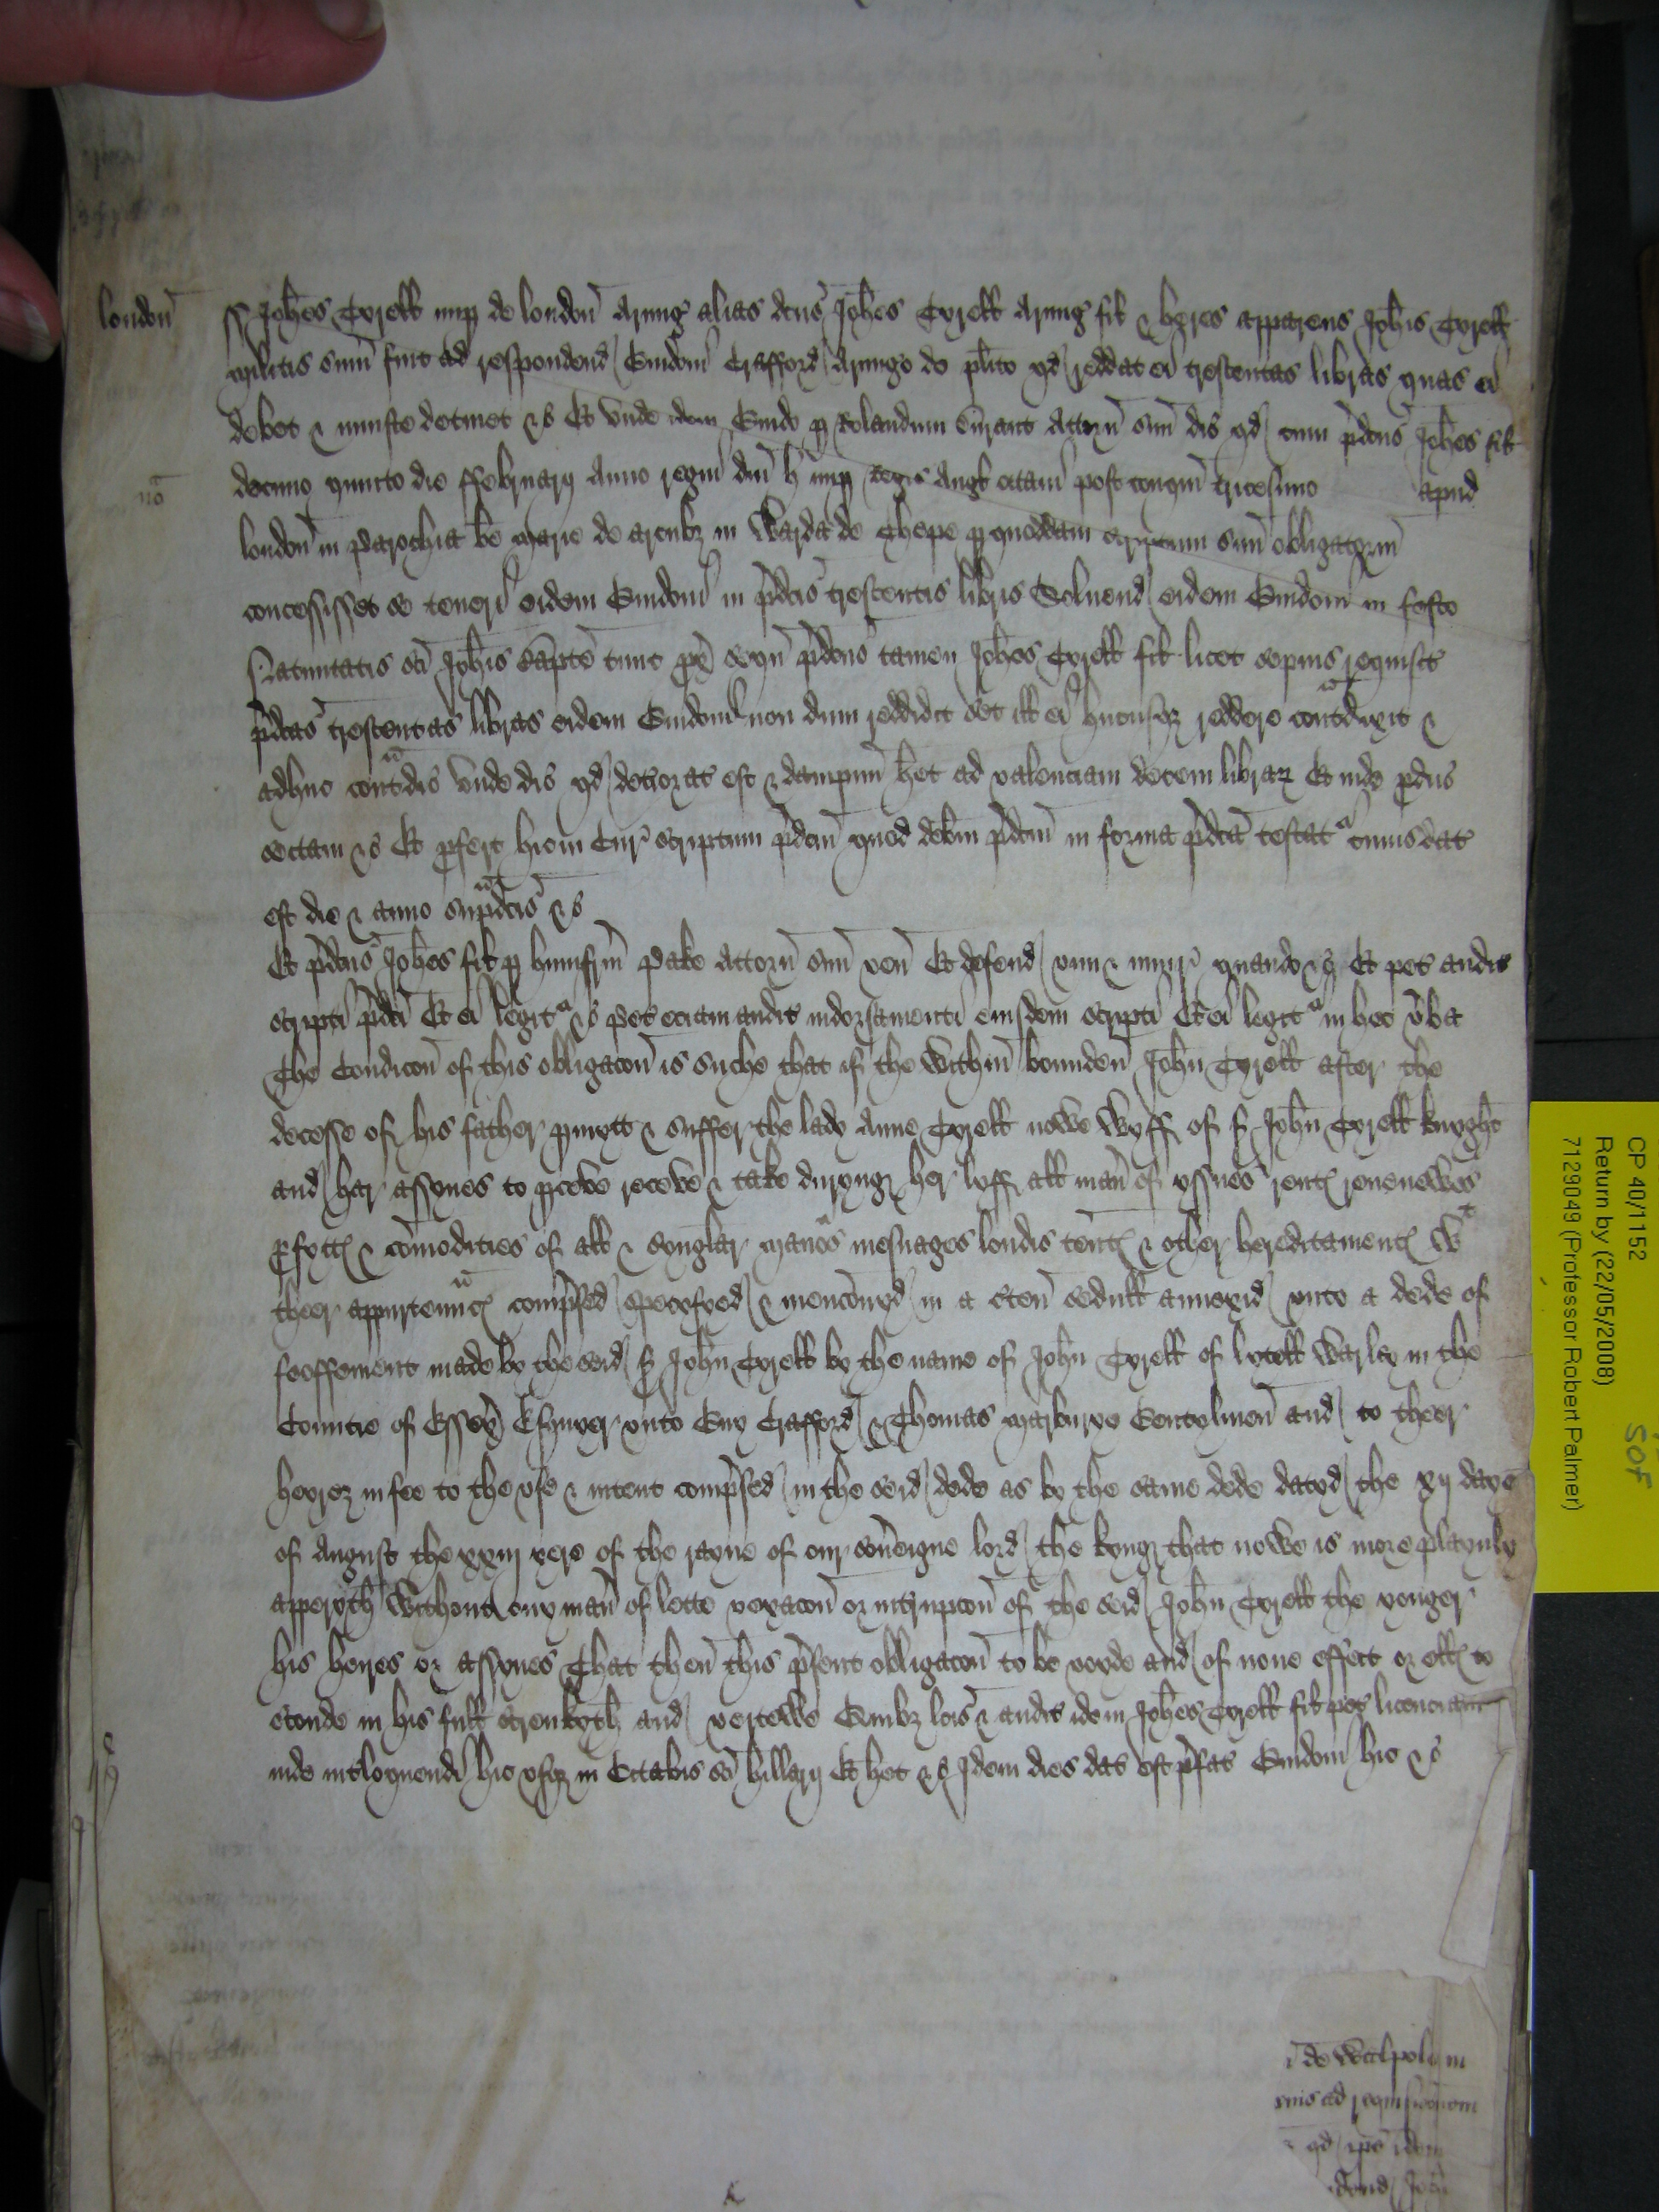 london
ss Johes Tyrell nup de london Armig alias dcus Johes Tyrell Armig fil & heres apparens Johis Tyrell
militis sum fuit ad respondend Guidoni Crafford Armigo de plito qd reddat ei trescentas libras quas ei
debet & iniuste detinet &c Et unde idem Guido p Rolandum Attorn suu dic qd cum pdcus Johes fil
no
decimo quinto die ffebruarij Anno regni dni h nup Regis Angl octavi post conqm tricesimo apud
london in parochia be marie de arcubz in Warda de Chepe p quoddam scriptum suu obligatorm
concessisset se teneri eidem Guidoni in pdcis trescentis libris Solvend eidem Guidoni in festo
Natiuitatis sci Johis Bapte tunc px sequ pdcus tamen Johes Tyrell fil licet sepius requisit
pdcas trescentas libras eidem Guidoni non dum reddidit set ill ei hucusqz reddere contdixit &
adhuc contdic unde dic qd deteriorat est & dampnm het ad valenciam decem librar Et inde pduc
sectam &c Et pfert hic in Cur scriptum pdcm quod debm pdcm in forma pdca testat cuius dat
est die & anno supdcis &c
Et pdcus Johes fil p humfrm pake Attorn suu ven Et defend vim & iniur quando &c Et pet audit
scripti pdci Et ei legit &c pet eciam audit indorsamenti eiusdem scripti Et ei legit in hec vba
The Condicon of this obligacon is suche that if the within bounden John Tyrell after the
decesse of his father pmytt & suffer the lady Anne Tyrell nowe Wyff of s John Tyrell knyght
and her assynes to pceve receve & take duryng her lyff all man of yssues rent revenewes
pfytt & comodities of all & synglar manos mesuages londis tent & other hereditament wt
theer appurtennc comprsed specyfyed & menconyd in a cten sedull annexid unto a dede of
feoffement made by the seid s John Tyrell by the name of John Tyrell of lytell Warley in the
Countie of Essex Esquyer unto Guy Crafford & Thomas marburye Gentylmen and to theer
heyrez in fee to the use & intent comprsed in the seid dede as by the same dede datyd the xij daye
of August the xxiij yere of the rayne of our soveigne lord the kyng that nowe is more playnly
apperyth Without eny man of lette vexacon or intrupcon of the seid John Tyrell the yonger
his heires or assynes That then this psent obligacon to be voyde and of none effect or ell to
stonde in his full strenkyth and vertewe Quibz lcis & audit idem Johes Tyrell fil pet licenciam
inde intloquendi hic usqz in Octabis sci hillarij Et het &c Idem dies dat est pfat Guidoni hic &c
de Walpole in
suis ad requisicionem
qd ipe idem
CP 40/1152
Return by (22/05/2008)
7129049 (Professor Robert Palmer)
SOF